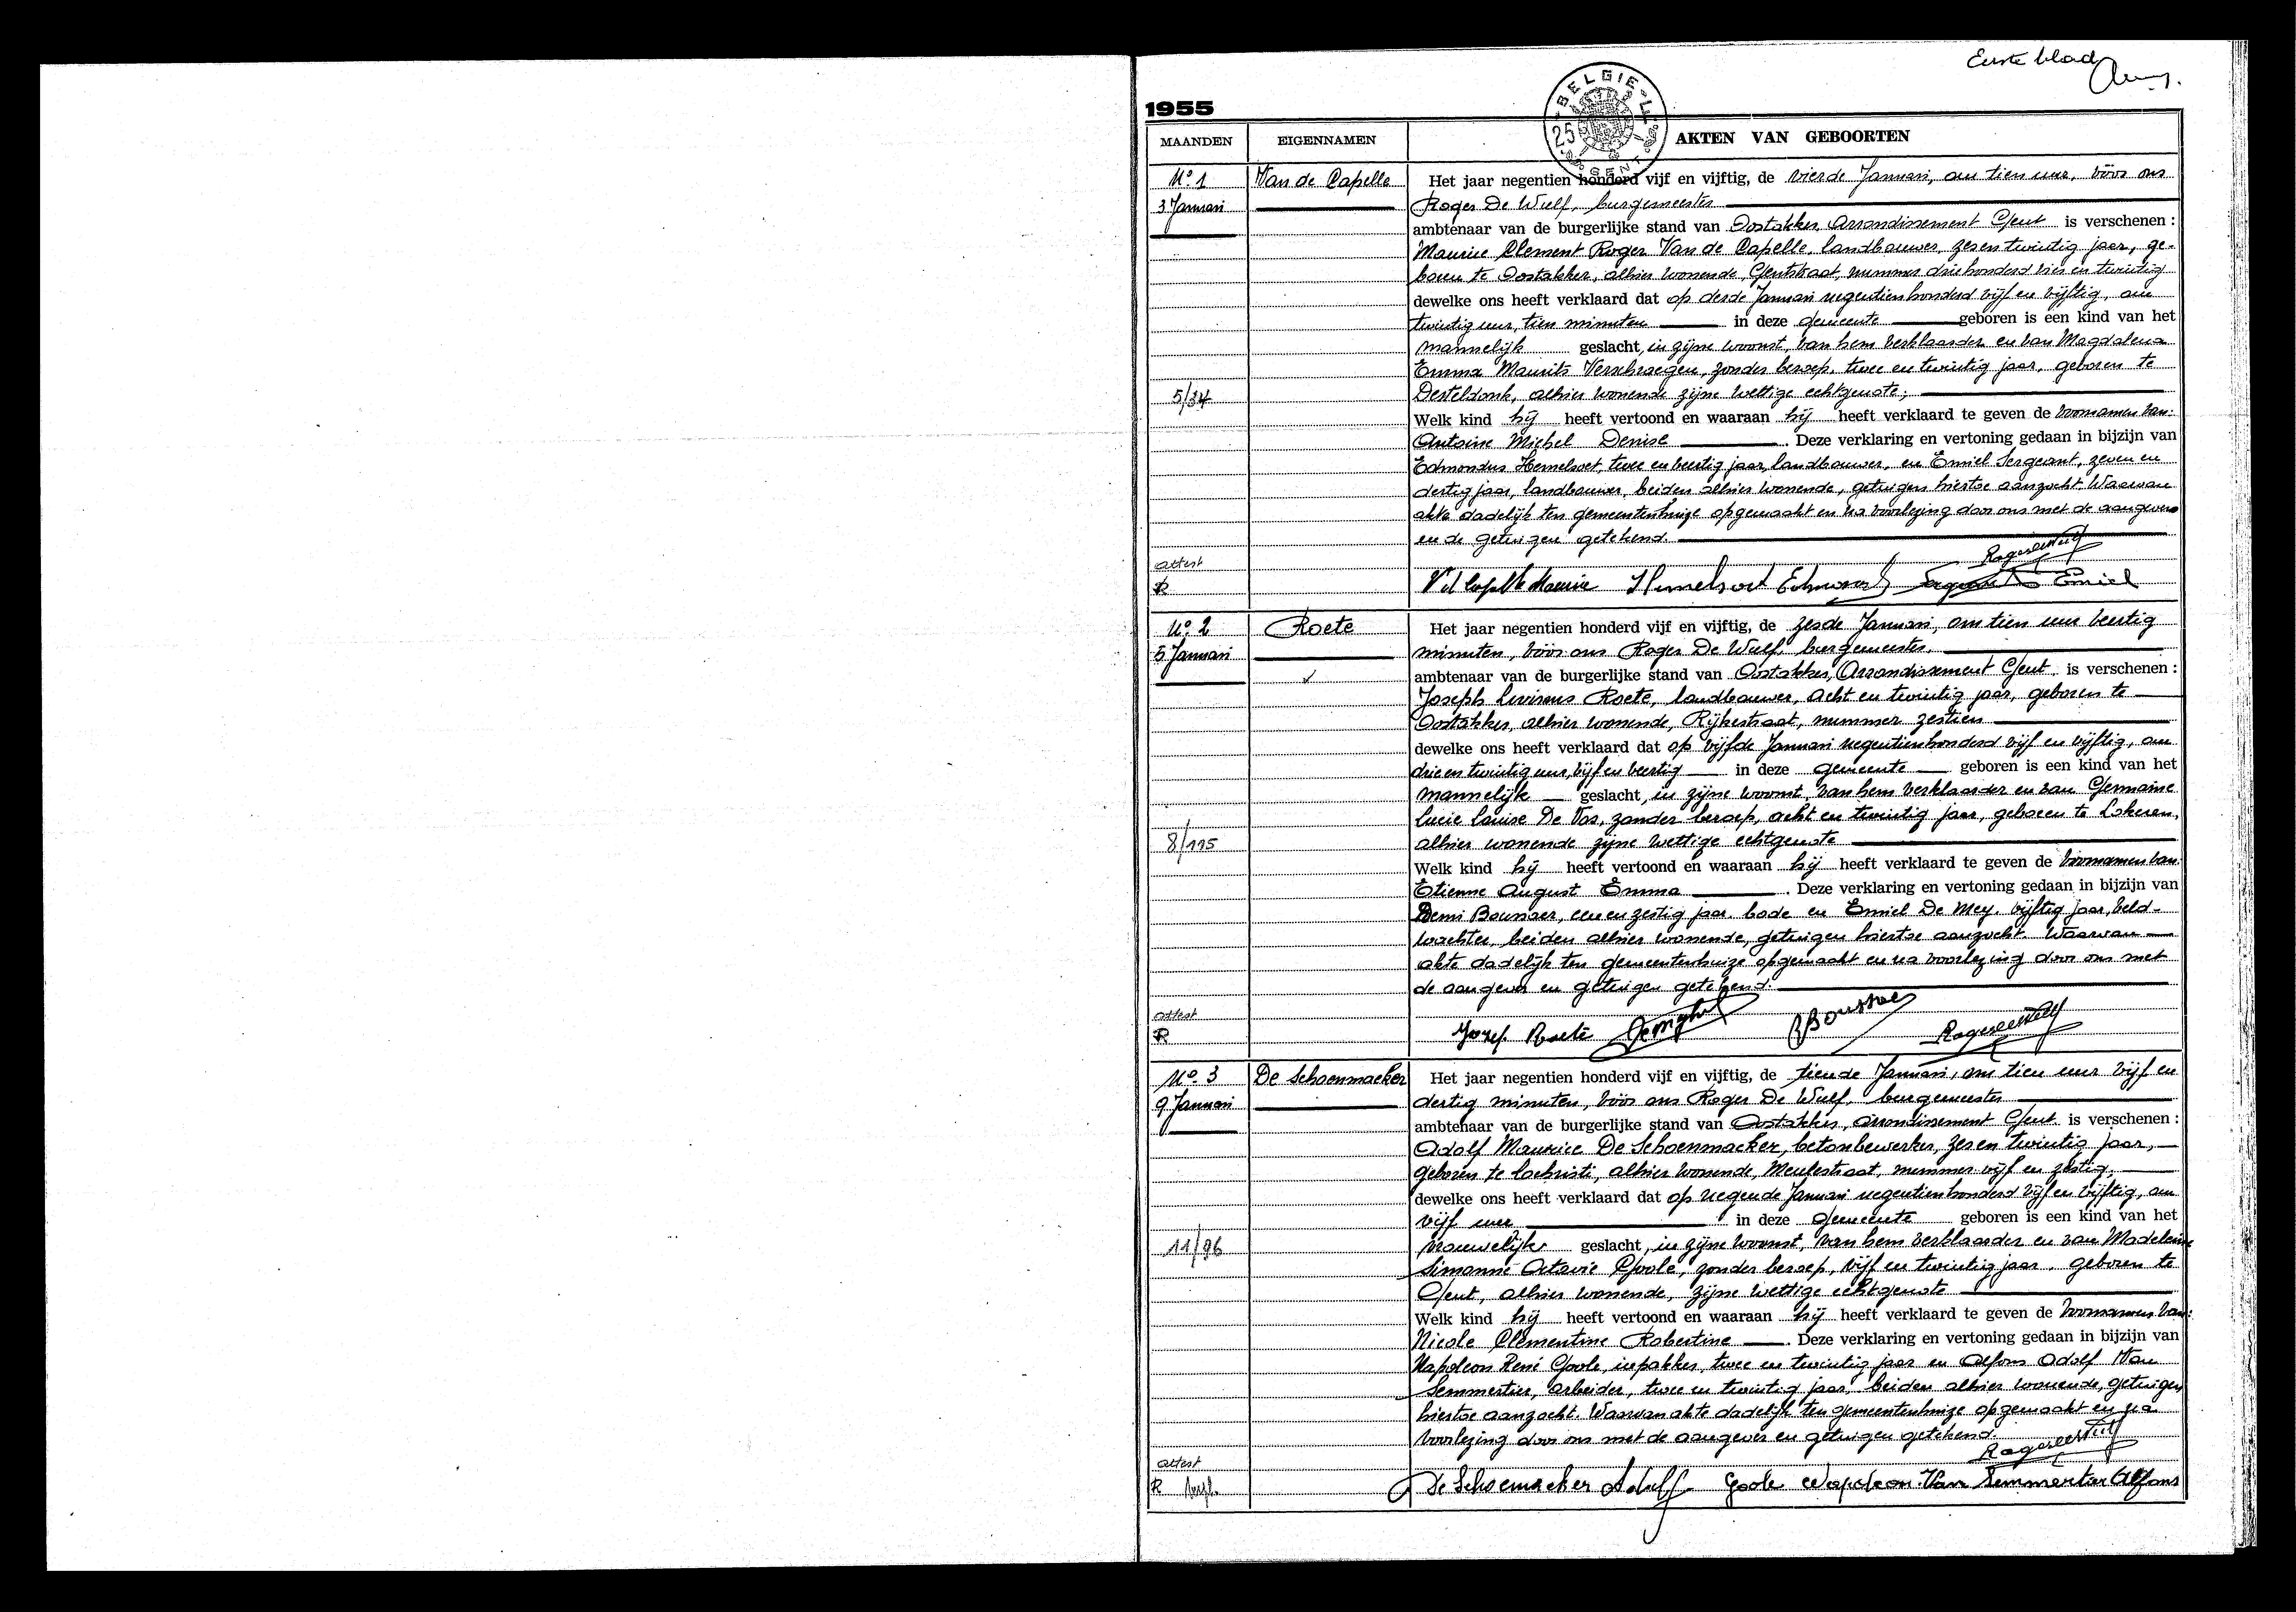 Eerste blad
1955
BELGIE
25
CENT
MAANDEN EIGENNAMEN AKTEN VAN GEBOORTEN
No 1 Van de Capelle Het jaar negentien honderd vijf en vijftig, de vierde Januari, om tien uur, vóór ons
3 Januari Roger De Wulf, burgemeester
ambtenaar van de burgerlijke stand van Oostakker, Arrondissement Gent is verschenen :
Maurice Clement Roger Van de Capelle, landbouwer, zesentwintig jaar, ge-
boren te Oostakker, alhier wonende, Gentstraat, nummer driehonderd vier en twintig
dewelke ons heeft verklaard dat op derde Januari negentienhonderd vijf en vijftig, om
twintig uur, tien minuten in deze gemeente geboren is een kind van het
mannelijk geslacht, in zijne woonst, van hem verklaarder en van Magdalena
Emma Maurits Verschraegen, zonder beroep, twee en twintig jaar, geboren te
5/34 Desteldonk, alhier wonende zijne wettige echtgenote;
Welk kind hij heeft vertoond en waaraan hij heeft verklaard te geven de voornamen van:
Antoine Michel Denise . Deze verklaring en vertoning gedaan in bijzijn van
Edmondus Hemelsoet, twee en veertig jaar, landbouwer, en Emiel Sergeant, zeven en
dertig jaar, landbouwer, beiden alhier wonende, getuigen hiertoe aanzocht. Waarvan
akte dadelijk ten gemeentenhuize opgemaakt en na voorlezing door ons met de aangever
en de getuigen getekend.
attest
R V d Capelle Maurice Hemelsoet Edmond Sergeant Emiel
No. 2 Roete Het jaar negentien honderd vijf en vijftig, de zesde Januari, om tien uur veertig
5 Januari minuten, vóór ons Roger De Wulf, burgemeester.
ambtenaar van de burgerlijke stand van Oostakker, Arrondissement Gent is verschenen :
Joseph Livinus Roete, landbouwer, acht en twintig jaar, geboren te
Oostakker, alhier wonende, Rijkestraat, nummer zestien
dewelke ons heeft verklaard dat op vijfde Januari negentienhonderd vijf en vijftig, om
drie en twintig uur, vijf en veertig in deze gemeente geboren is een kind van het
mannelijk geslacht, in zijne woonst, van hem verklaarder en van Germaine
Lucie Louise De Vos, zonder beroep, acht en twintig jaar, geboren te Lokeren,
8/115 alhier wonende zijne wettige echtgenote
Welk kind hij heeft vertoond en waaraan hij heeft verklaard te geven de voornamen van:
Etienne August Emma . Deze verklaring en vertoning gedaan in bijzijn van
Remi Boussaer, een en zestig jaar, bode en Emiel De Mey, vijftig jaar, veld-
wachter, beiden alhier wonende, getuigen hiertoe aanzocht. Waarvan
akte dadelijk ten gemeentenhuize opgemaakt en na voorlezing door ons met
de aangever en getuigen getekend.
attest
R Jozef Roete
No. 3 De Schoenmacker Het jaar negentien honderd vijf en vijftig, de tiende Januari, om tien uur vijf en
9 Januari dertig minuten, vóór ons Roger De Wulf, burgemeester
ambtenaar van de burgerlijke stand van Oostakker, arrondissement Gent is verschenen :
Adolf Maurice De Schoenmacker, betonbewerker, zes en twintig jaar,
geboren te Lochristi, alhier wonende, Meulestraat, nummer vijf en zestig,
dewelke ons heeft verklaard dat op negende Januari negentienhonderd vijf en vijftig, om
vijf uur in deze gemeente geboren is een kind van het
11/96 vrouwelijk geslacht, in zijne woonst, van hem verklaarder en van Madeleine
Simonne Octavie Goole, zonder beroep, vijf en twintig jaar, geboren te
Gent, alhier wonende, zijne wettige echtgenote
Welk kind hij heeft vertoond en waaraan hij heeft verklaard te geven de voornamen van:
Nicole Clementine Robertine . Deze verklaring en vertoning gedaan in bijzijn van
Napoleon René Goole, inpakker, twee en twintig jaar en Alfons Adolf Van
Semmertier, arbeider, twee en twintig jaar, beiden alhier wonende, getuigen
hiertoe aanzocht. Waarvan akte dadelijk ten gemeentenhuize opgemaakt en na
voorlezing door ons met de aangever en getuigen getekend.
attest
R De Schoemacker Adolf Goole Napoleon Van Semmertier Alfons